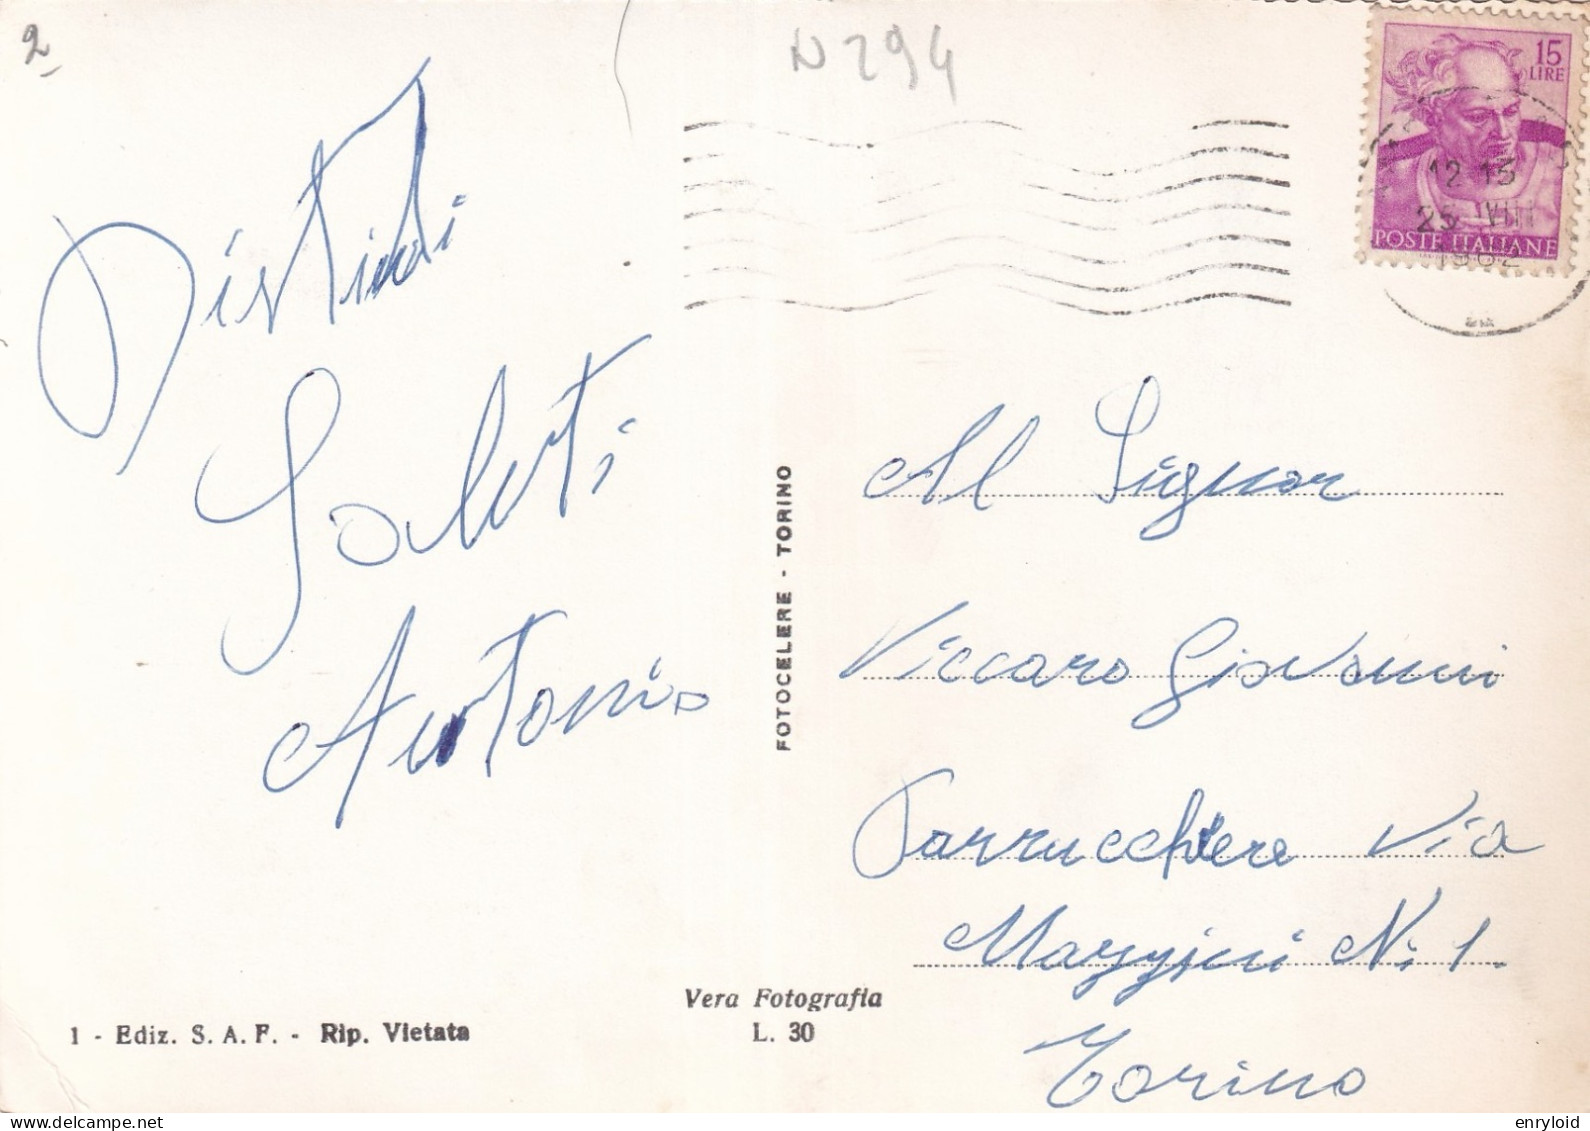 2
N 294
15
LIRE
12 15
25 VIII
1962
POSTE ITALIANE
Distinti
Saluti
Antonio
FOTOCELERE - TORINO
Al Signor
Viccaro Giovanni
Parrucchiere Via
N. 1.
Torino
Vera Fotografia
L. 30
1 - Ediz. S. A. F. - Rip. Vietata
enryloid